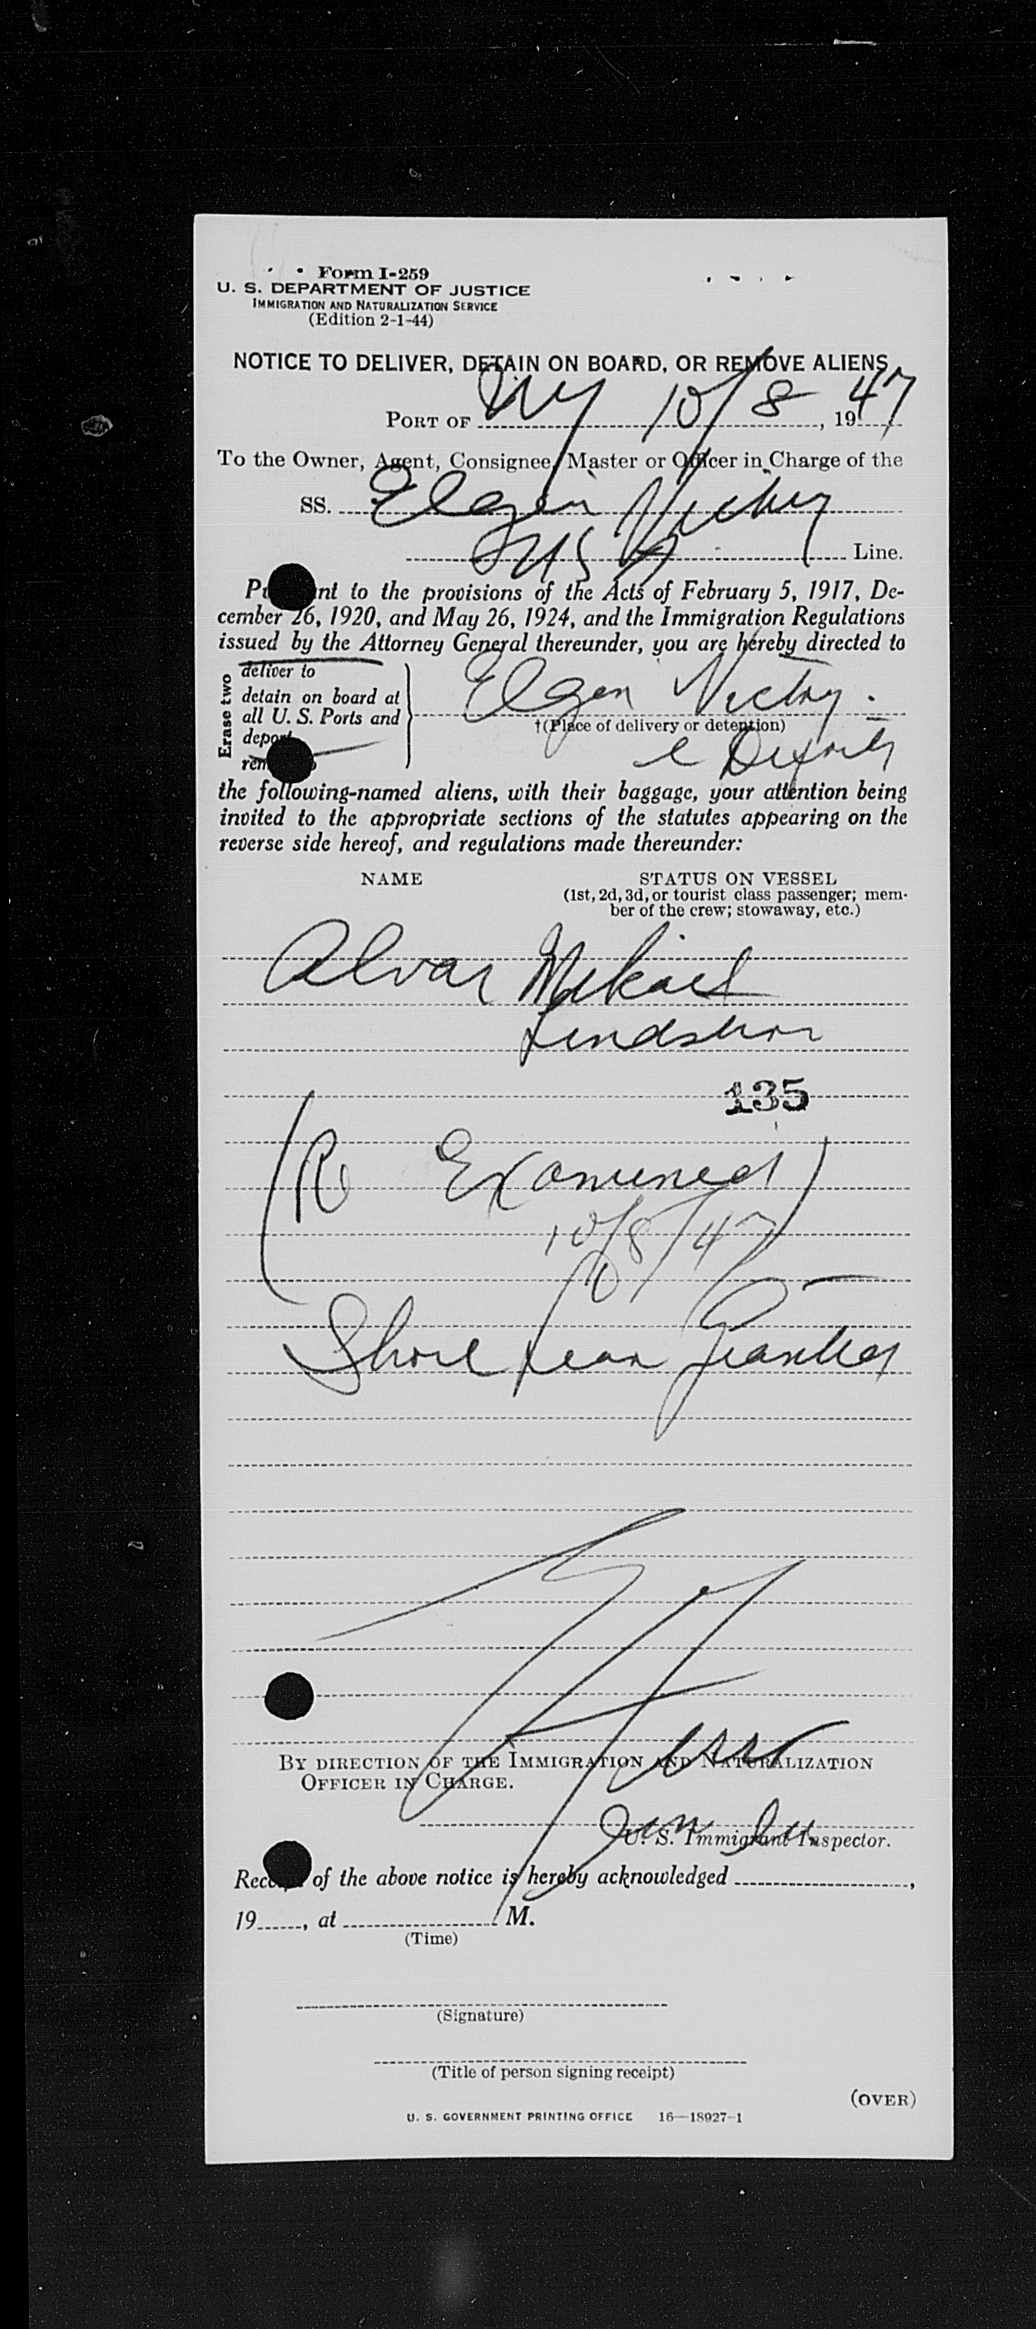 Form I-259
U. S. DEPARTMENT OF JUSTICE
IMMIGRATION AND NATURALIZATION SERVICE
(Edition 2-1-44)
NOTICE TO DELIVER, DETAIN ON BOARD, OR REMOVE ALIENS
PORT OF NY 10/8, 1947
To the Owner, Agent, Consignee, Master or Officer in Charge of the
SS. Elgin Victory
Line.
to the provisions of the Acts of February 5, 1917, De-
cember 26, 1920, and May 26, 1924, and the Immigration Regulations
issued by the Attorney General thereunder, you are hereby directed to
Erase two
deliver to
detain on board at
all U. S. Ports and
deport
Elgin Victory.
†(Place of delivery or detention)
the following-named aliens, with their baggage, your attention being
invited to the appropriate sections of the statutes appearing on the
reverse side hereof, and regulations made thereunder:
NAME STATUS ON VESSEL
(1st, 2d, 3d, or tourist class passenger; mem-
ber of the crew; stowaway, etc.)
Alvar Mikael
Lindstrom
135
(Re Examined)
10/8/47
Shore Leave Granted
BY DIRECTION OF THE IMMIGRATION AND NATURALIZATION
OFFICER IN CHARGE.
U. S. Immigrant Inspector.
of the above notice is hereby acknowledged ,
19 , at M.
(Time)
(Signature)
(Title of person signing receipt)
(OVER)
U. S. GOVERNMENT PRINTING OFFICE 16—18927-1